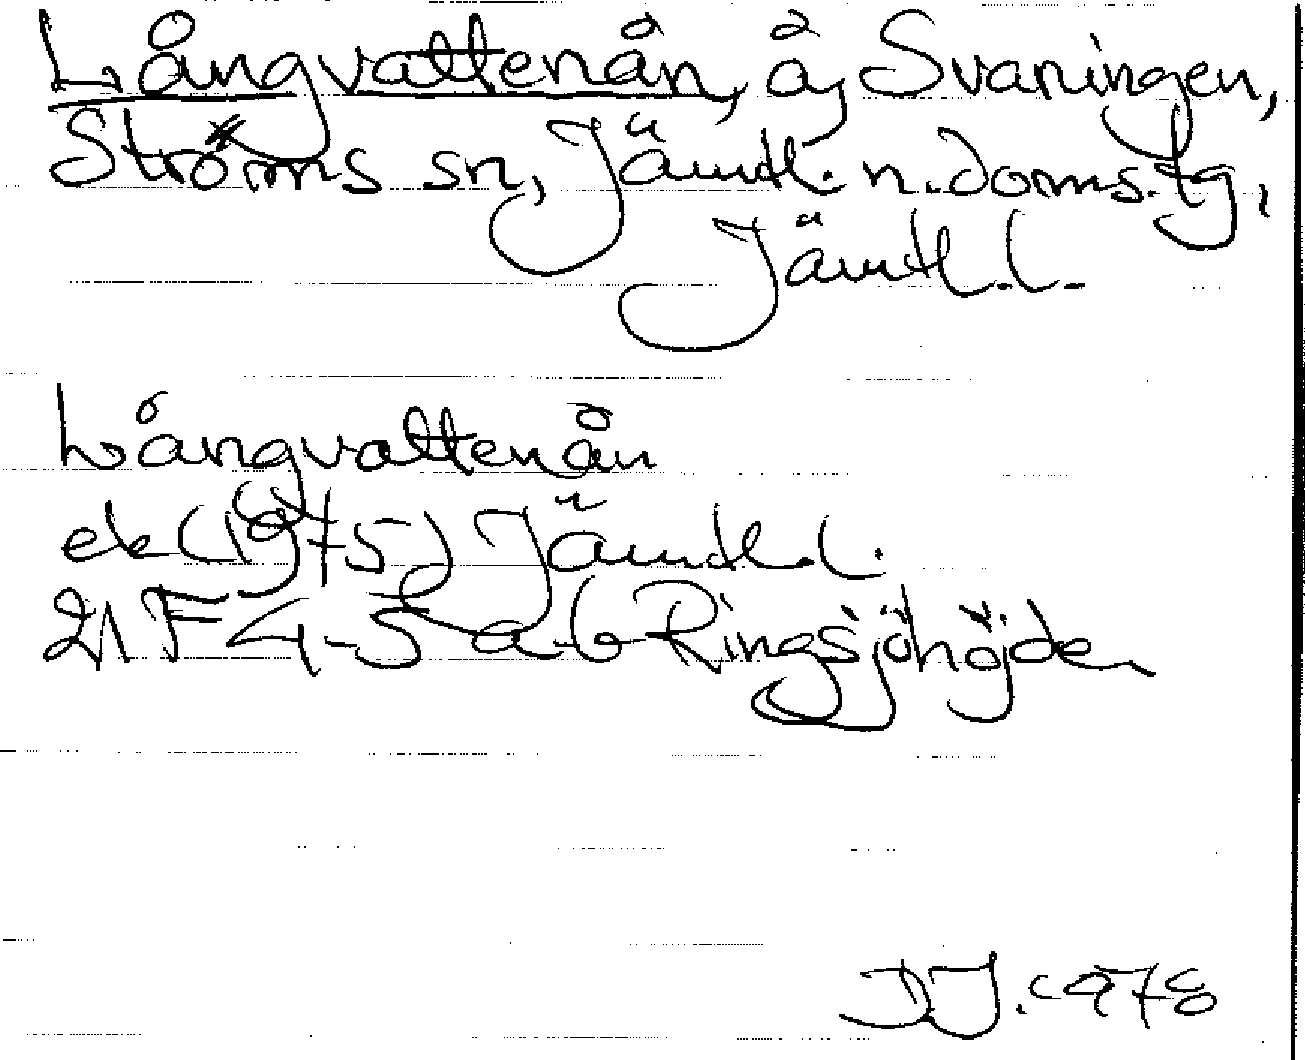 Långvattenån, å, Svaningen,
Ströms sn, Jämtl. n. doms. tg,
Jämtl. l.
Långvattenån
ek (1975) Jämtl. l.
21 F 4-5 a-b Ringsjöhöjden
DJ. 1978